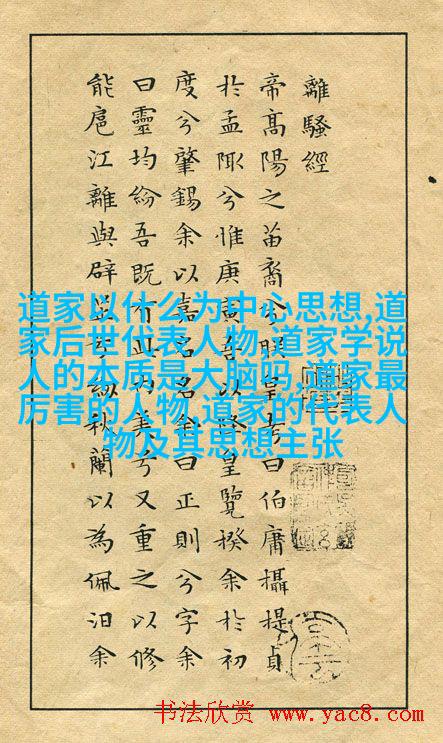 離騷經
帝高陽之苗裔兮朕皇考曰伯庸攝提貞
於孟陬兮惟庚寅吾以降皇覽揆余於初
度兮肇錫余以嘉名名余曰正則兮字余
曰靈均紛吾既有此內美兮又重之以修
能扈江離與辟芷兮紉秋蘭以為佩汨余
道家以什么为中心思想,道
家后世代表人物,道家学说
人的本质是大脑吗,道家最
厉害的人物,道家的代表人
物及其思想主张
书法欣赏 www.yac8.com